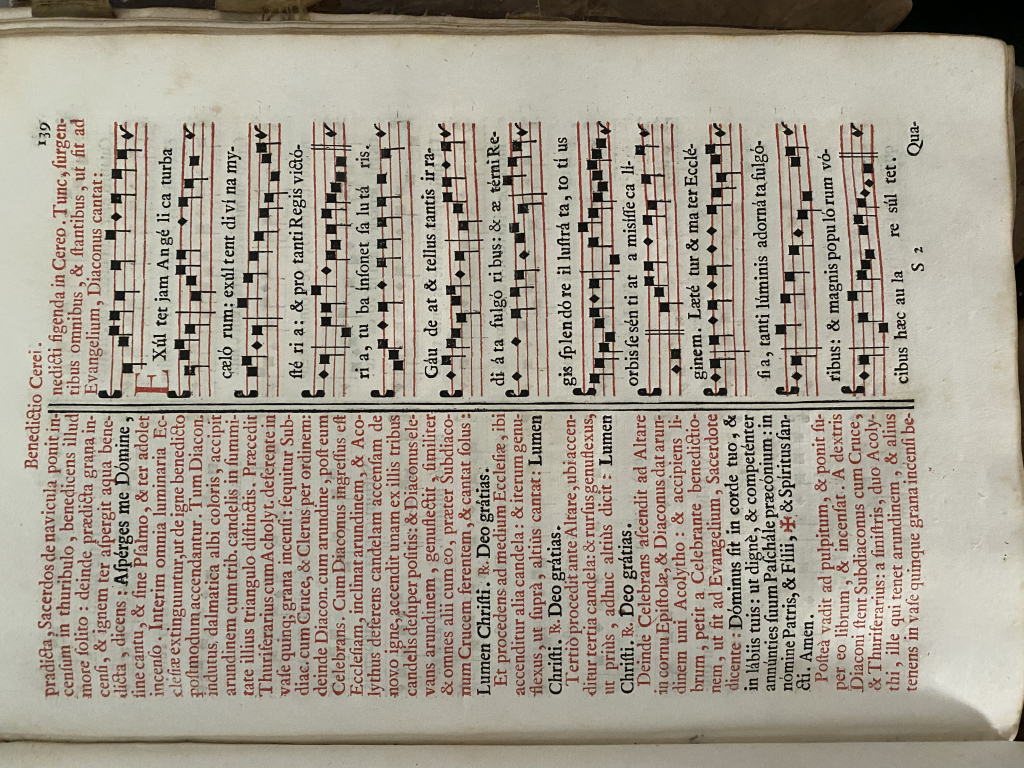 Benedictio Cerei.
139
prædicta, Sacerdos de navicula ponit in-
censum in thuribulo, benedicens illud
more solito: deinde prædicta grana in-
censi, & ignem ter aspergit aqua bene-
dicta, dicens: Aspérges me Dómine,
sine cantu, & sine Psalmo, & ter adolet
incenso. Interim omnia luminaria Ec-
clesiæ extinguuntur, ut de igne benedicto
postmodum accendantur. Tum Diacon.
indutus dalmatica albi coloris accipit
arundinem cum trib. candelis in summi-
tate illius triangulo distinctis. Præcedit
Thuriferarius cum Acholyt. deferente in
vase quinq; grana incensi: sequitur Sub-
diac. cum Cruce, & Clerus per ordinem:
deinde Diacon. cum arundine, post eum
Celebrans. Cum Diaconus ingressus est
Ecclesiam, inclinat arundinem, & Aco-
lythus deferens candelam accensam de
novo igne, accendit unam ex illis tribus
candelis desuper positis: & Diaconus ele-
vans arundinem, genuflectit, similiter
& omes alii cum eo, præter Subdiaco-
num Crucem ferentem, & cantat solus:
Lumen Christi. ℞. Deo grátias.
Et procedens ad mediū Ecclesiæ, ibi
accenditur alia candela: & iterum genu-
flexus, ut suprà, altius cantat: Lumen
Christi. ℞. Deo grátias.
Tertiò procedit ante Altare, ubi accen-
ditur tertia candela: & rursus genuflexus,
ut priùs, adhuc altiùs dicit: Lumen
Christi. ℞. Deo grátias.
Deinde Celebrans ascendit ad Altare
in cornu Epistolæ, & Diaconus dat arun-
dinem uni Acolytho: & accipiens li-
brum, petit a Celebrante benedictio-
nem, ut fit ad Evangelium, Sacerdote
dicente: Dóminus sit in corde tuo, &
in lábiis tuis: ut dignè, & competenter
anúnties suum Paschále præconium: in
nómine Patris, & Filii, ✠ & Spíritus san-
cti. Amen.
Postea vadit ad pulpitum, & ponit su-
per eo librum, & incensat. A dextris
Diaconi stent Subdiaconus cum Cruce,
& Thuriferarius: a sinistris, duo Acoly-
thi, ille qui tenet arundinem, & alius
tenens in vase quinque grana incensi be-
nedicti figenda in Cereo. Tunc, surgen-
tibus omnibus, & stantibus, ut fit ad
Evangelium, Diaconus cantat:
EXúl tet jam An gé li ca turba
cæló rum: exúl tent di ví na my-
sté ri a: & pro tanti Regis victó-
ri a, tu ba insonet sa lutá ris.
Gáu de at & tellus tantis irra-
di á ta fulgó ribus: & æ térni Re-
gis splendó re il lustrá ta, to tí us
orbis se sén ti at a mísisse ca lí-
ginem. Læté tur & ma ter Ecclé-
si a, tanti lúminis adorná ta fulgó-
ribus: & magnis popu ló rum vó-
cibus hæc au la re súl tet.
S 2 Qua-